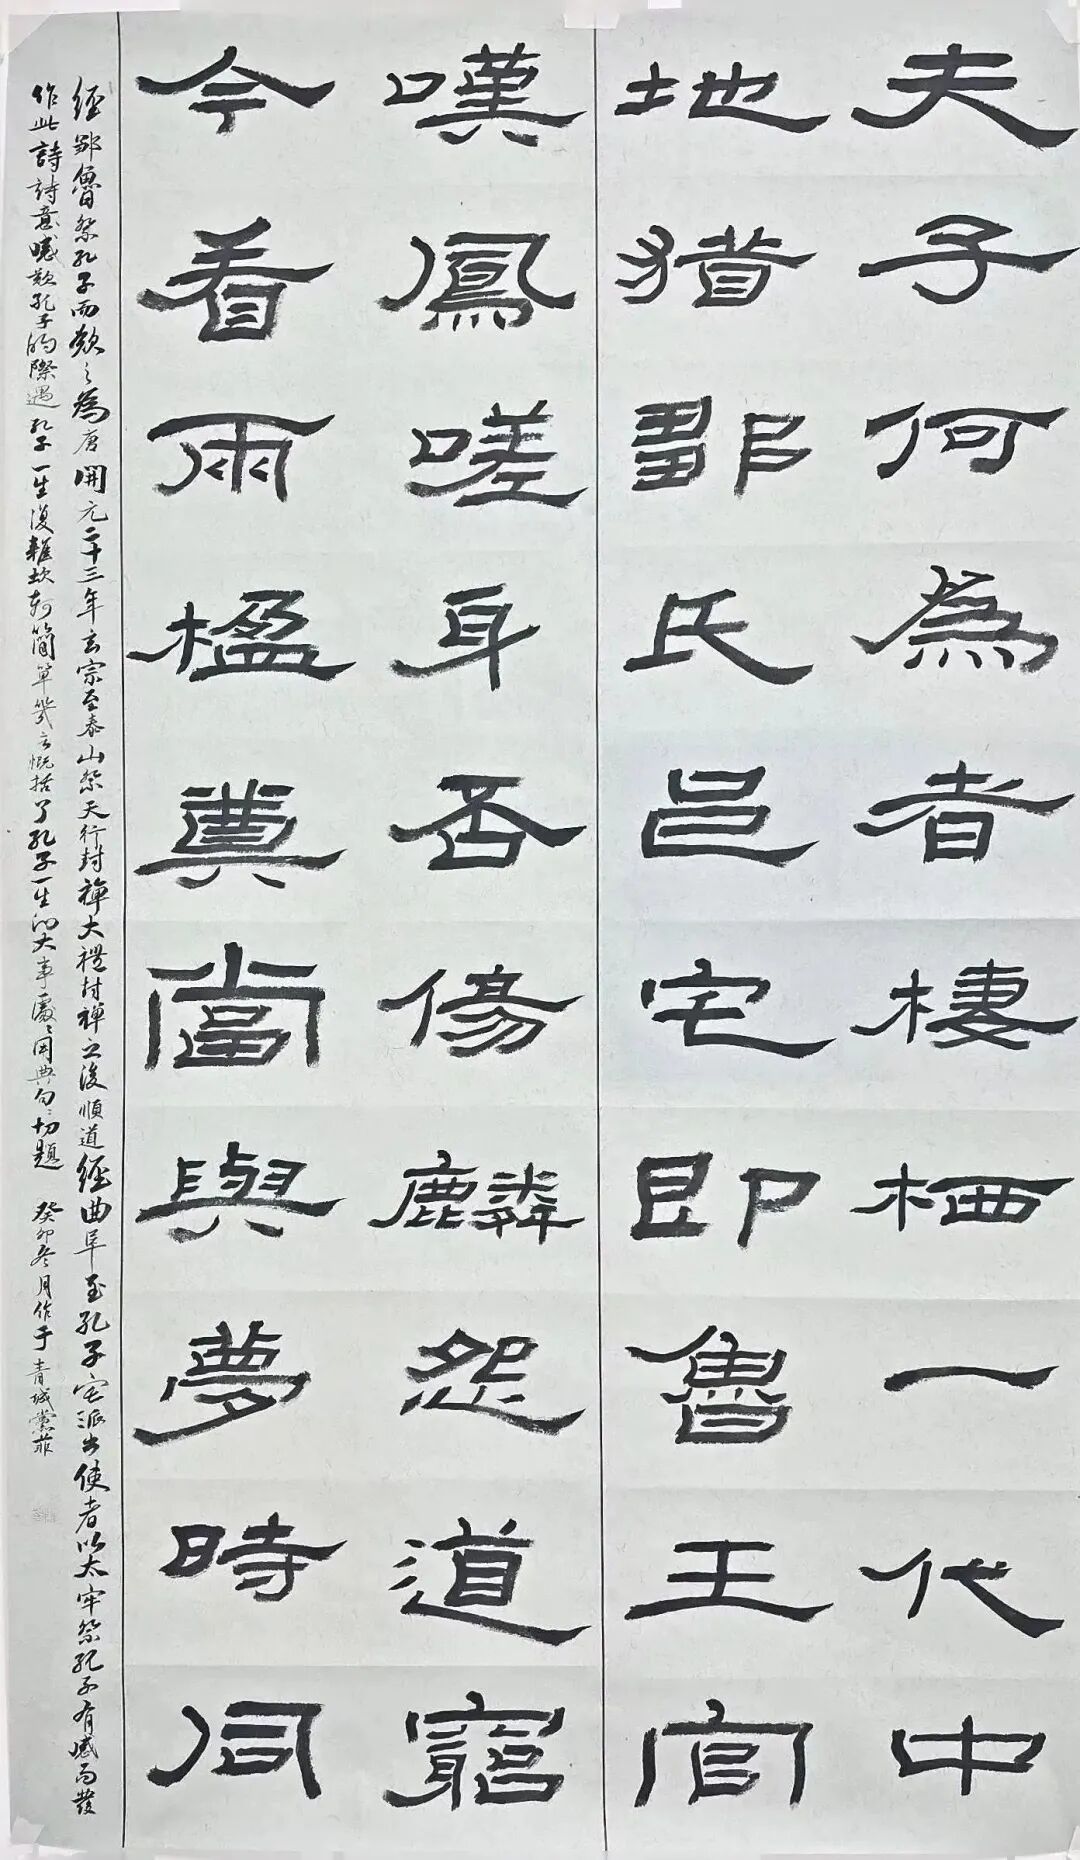 夫子何為者棲栖一代中
地猶鄹氏邑宅即魯王宮
嘆鳳嗟身否傷麟怨道窮
今看兩楹奠當與夢時同
經鄒魯祭孔子而歎之為唐開元二十三年玄宗至泰山祭天行封禅大禮封禅之後順道經曲阜至孔子宅派出使者以太牢祭孔子有感而發
作此詩詩意感歎孔子的際遇孔子一生復雜坎坷簡單幾言概括了孔子一生的大事處處用典句句切題 癸卯冬月作于青城黨菲